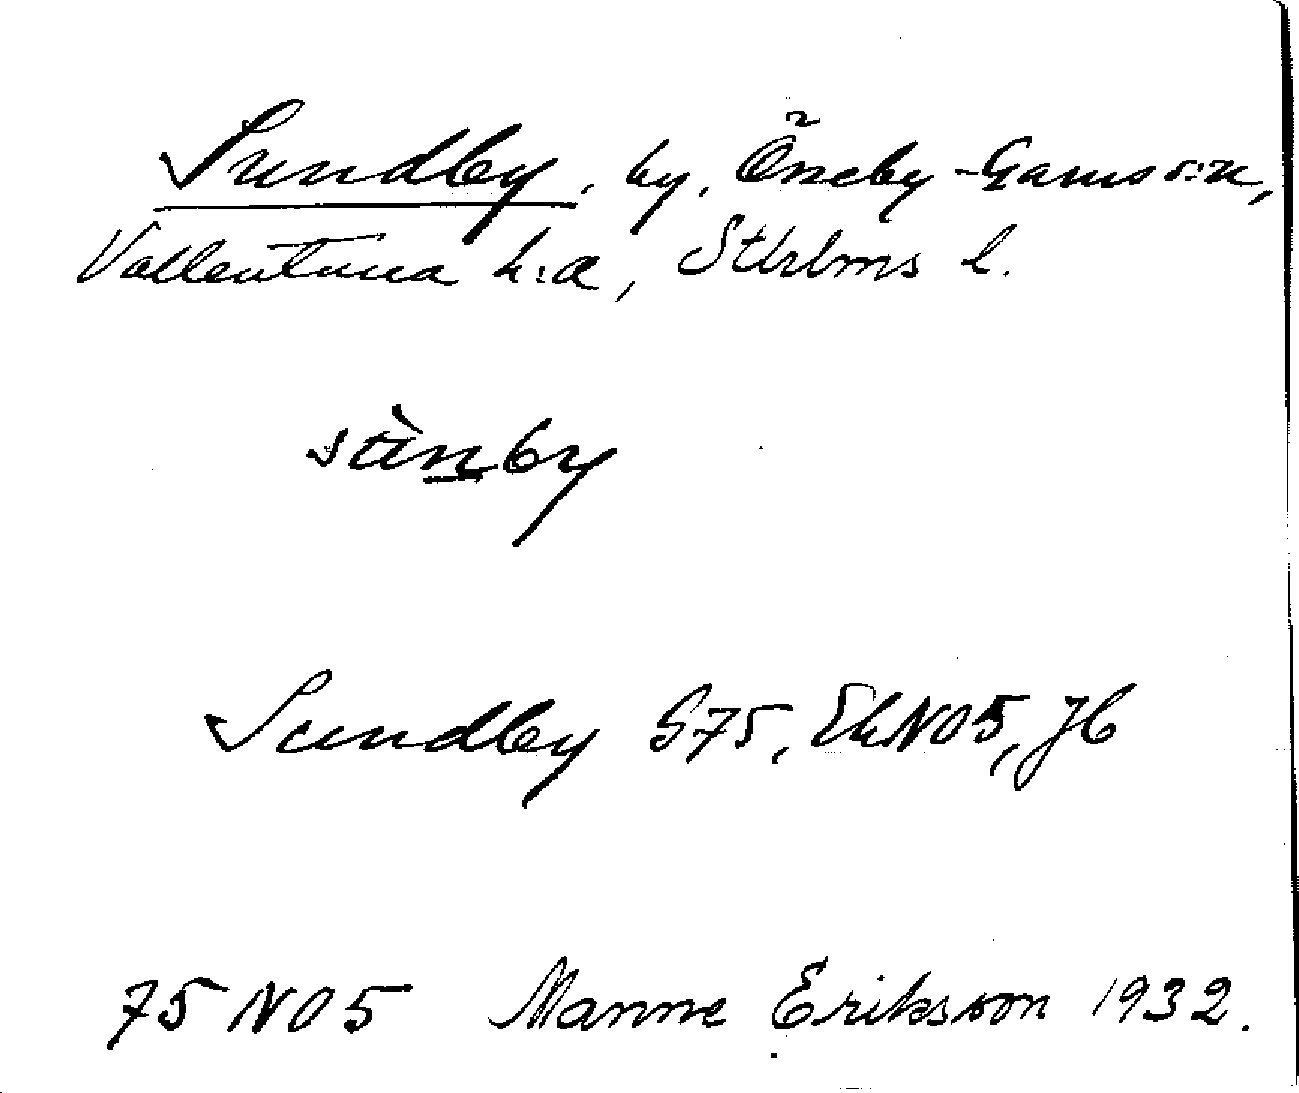 Sundby, by, Össeby-Garns s:n,
Vallentuna h:a, Sthlms l.
sùnby
Sundby G75, EkNO5, Jb
75 NO5 Manne Eriksson 1932.